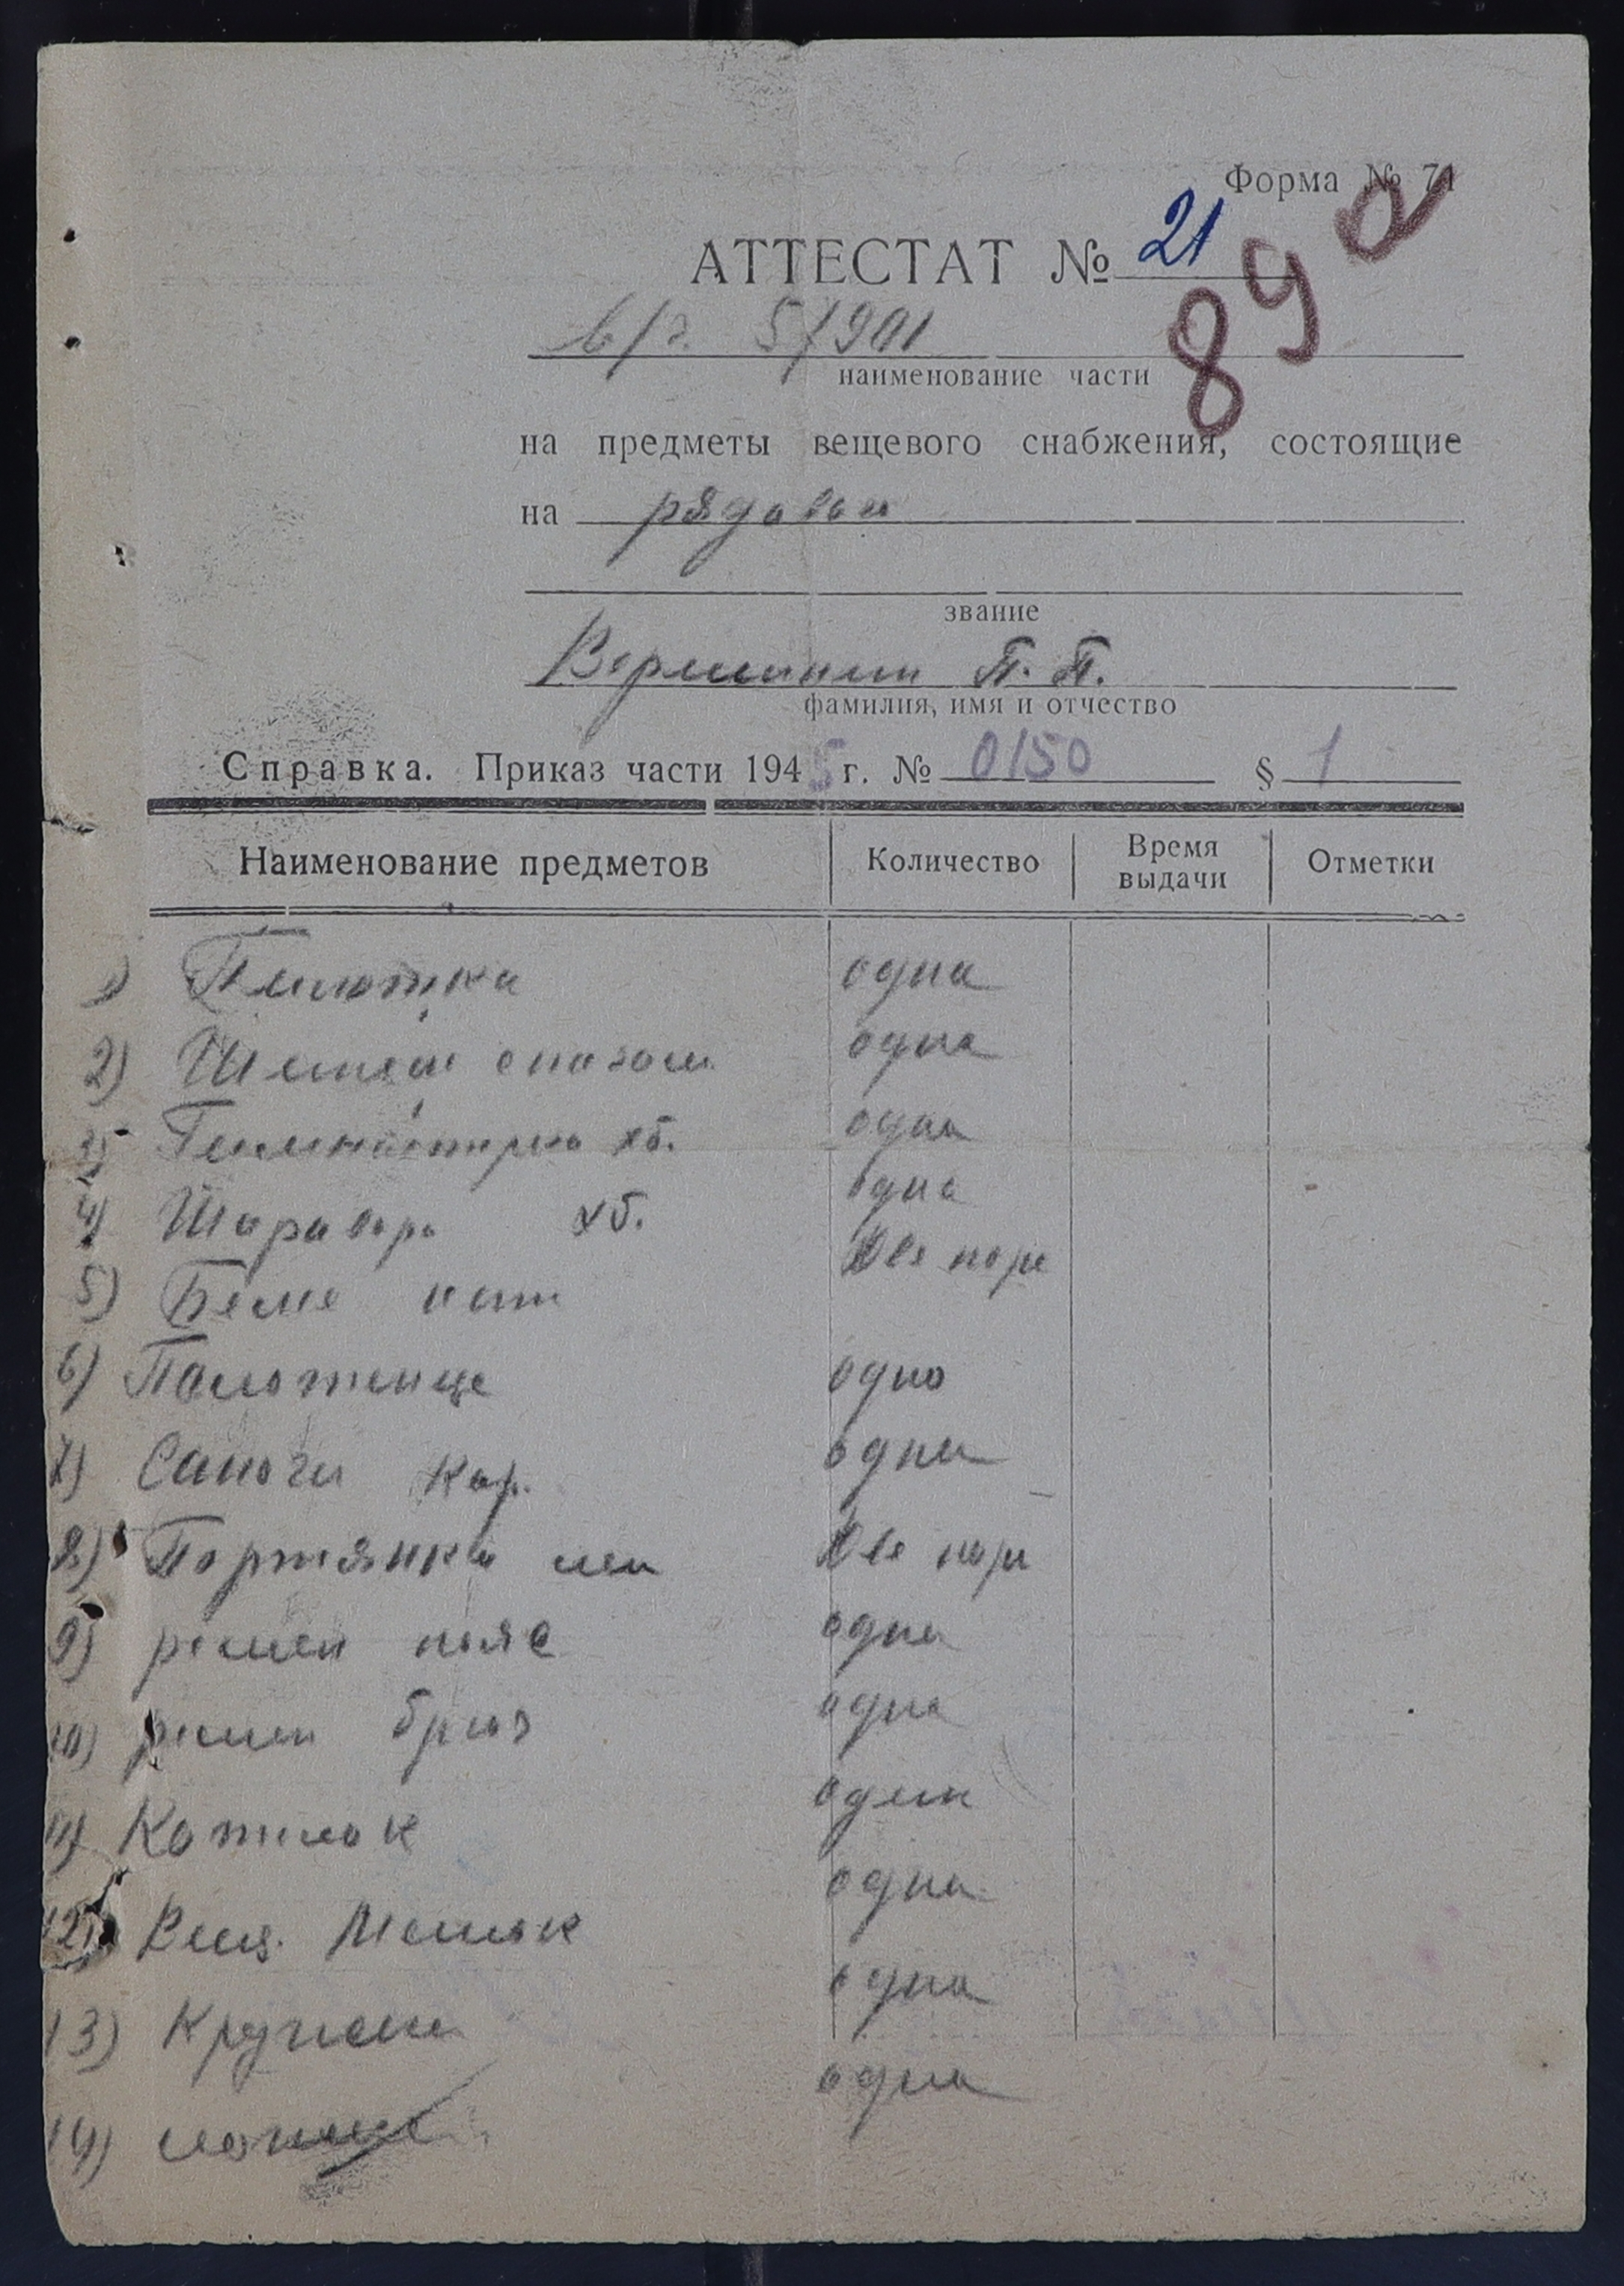 Форма № 71
АТТЕСТАТ № 21
89
в/ч. 51901
наименование части
на предметы вещевого снабжения, состоящие
на рядовой
звание
Вершинин П. П.
фамилия, имя и отчество
Справка. Приказ части 1945 г. № 0150 § 1
Наименование предметов Количество Время выдачи Отметки
1) Пилотка одна
2) одна
3) Гимнастерка хб. одна
4) Шаравары хб. одна
5) Белье нат Две пары
6) Полотенце одно
7) Сапоги кир. одни
8) Портянки лет Две пары
9) ремен пояс один
10) ремен брюч один
11) Котелок один
12) Вещ. Мешок одна
13) Кружка одна
14) ложка одна